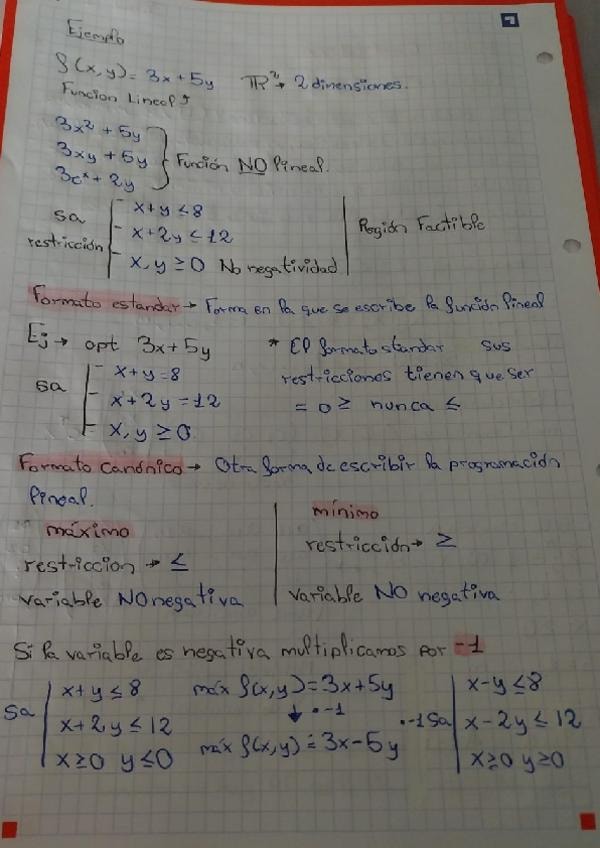 Ejemplo
f(x,y) = 3x + 5y ℝ² → 2 dimensiones.
Funcion Lineal ↑
3x² + 5y
3xy + 5y
3eˣ + 2y
Función NO lineal.
sa restricción
x+y ≤ 8
x+2y ≤ 12
x, y ≥ 0 No negatividad
Región Factible
Formato estandar → Forma en la que se escribe la función lineal
Ej → opt 3x + 5y
sa
x+y = 8
x+2y = 12
x, y ≥ 0
* El formato standar sus
restricciones tienen que ser
= o ≥ nunca ≤
Formato canónico → Otra forma de escribir la programación
lineal.
máximo
restriccion → ≤
variable NO negativa
mínimo
restricción → ≥
variable NO negativa
Si la variable es negativa multiplicamos por -1
sa
x+y ≤ 8
x+2y ≤ 12
x ≥ 0 y ≤ 0
máx f(x,y) = 3x + 5y
↓ · -1
máx f(x,y) = 3x - 5y
· -1 sa
x-y ≤ 8
x-2y ≤ 12
x ≥ 0 y ≥ 0